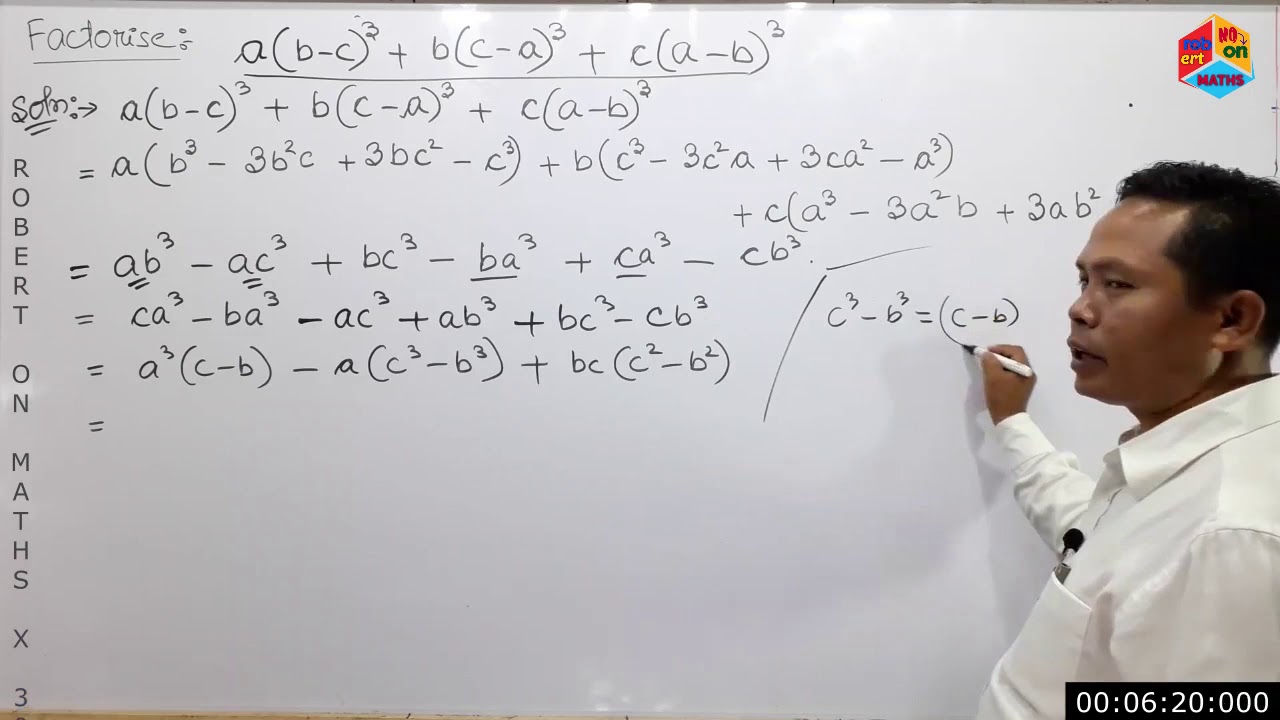 Factorise:
a(b-c)³ + b(c-a)³ + c(a-b)³
Soln:→ a(b-c)³ + b(c-a)³ + c(a-b)³
= a(b³ - 3b²c + 3bc² - c³) + b(c³ - 3c²a + 3ca² - a³)
+ c(a³ - 3a²b + 3ab²
= ab³ - ac³ + bc³ - ba³ + ca³ - cb³.
= ca³ - ba³ - ac³ + ab³ + bc³ - cb³
= a³(c-b) - a(c³-b³) + bc(c²-b²)
=
c³ - b³ = (c-b)
(
robert
NO
on
MATHS
ROBERT ON MATHS X 3
00:06:20:000